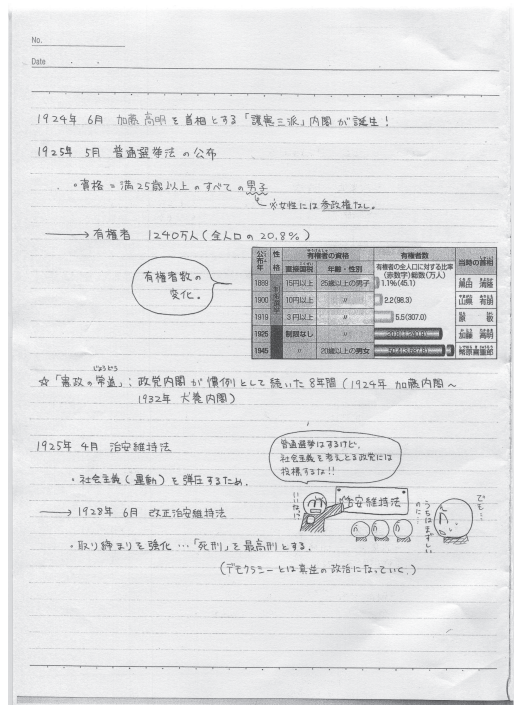 No.
Date
1924年 6月 加藤高明を首相とする「護憲三派」内閣が誕生!
1925年 5月 普通選挙法の公布
・資格=満25歳以上のすべての男子
※女性には参政権なし。
→ 有権者 1240万人(全人口の20.8%)
有権者数の
変化。
公布年 性格 有権者の資格 有権者数 当時の首相
直接国税 年齢・性別 有権者の全人口に対する比率
(赤数字)総数(万人)
1889 制限選挙 15円以上 25歳以上の男子 1.1%(45.1) 黒田 清隆
1900 10円以上 〃 2.2(98.3) 山県 有朋
1919 3円以上 〃 5.5(307.0) 原 敬
1925 制限なし 〃 20.8(1,240.9) 加藤 高明
1945 〃 20歳以上の男女 50.4(3,687.8) 幣原喜重郎
じょうどう
☆「憲政の常道」: 政党内閣が慣例として続いた8年間(1924年 加藤内閣~
1932年 犬養内閣)
1925年 4月 治安維持法
普通選挙はするけど、
社会主義を考えとる政党には
投票するな!!
・社会主義(運動)を弾圧するため。
→ 1928年 6月 改正治安維持法
いいな!?
治安維持法
でも…
うちはまずしい
のに…
・取り締まりを強化…「死刑」を最高刑とする。
(デモクラシーとは真逆の政治になっていく。)